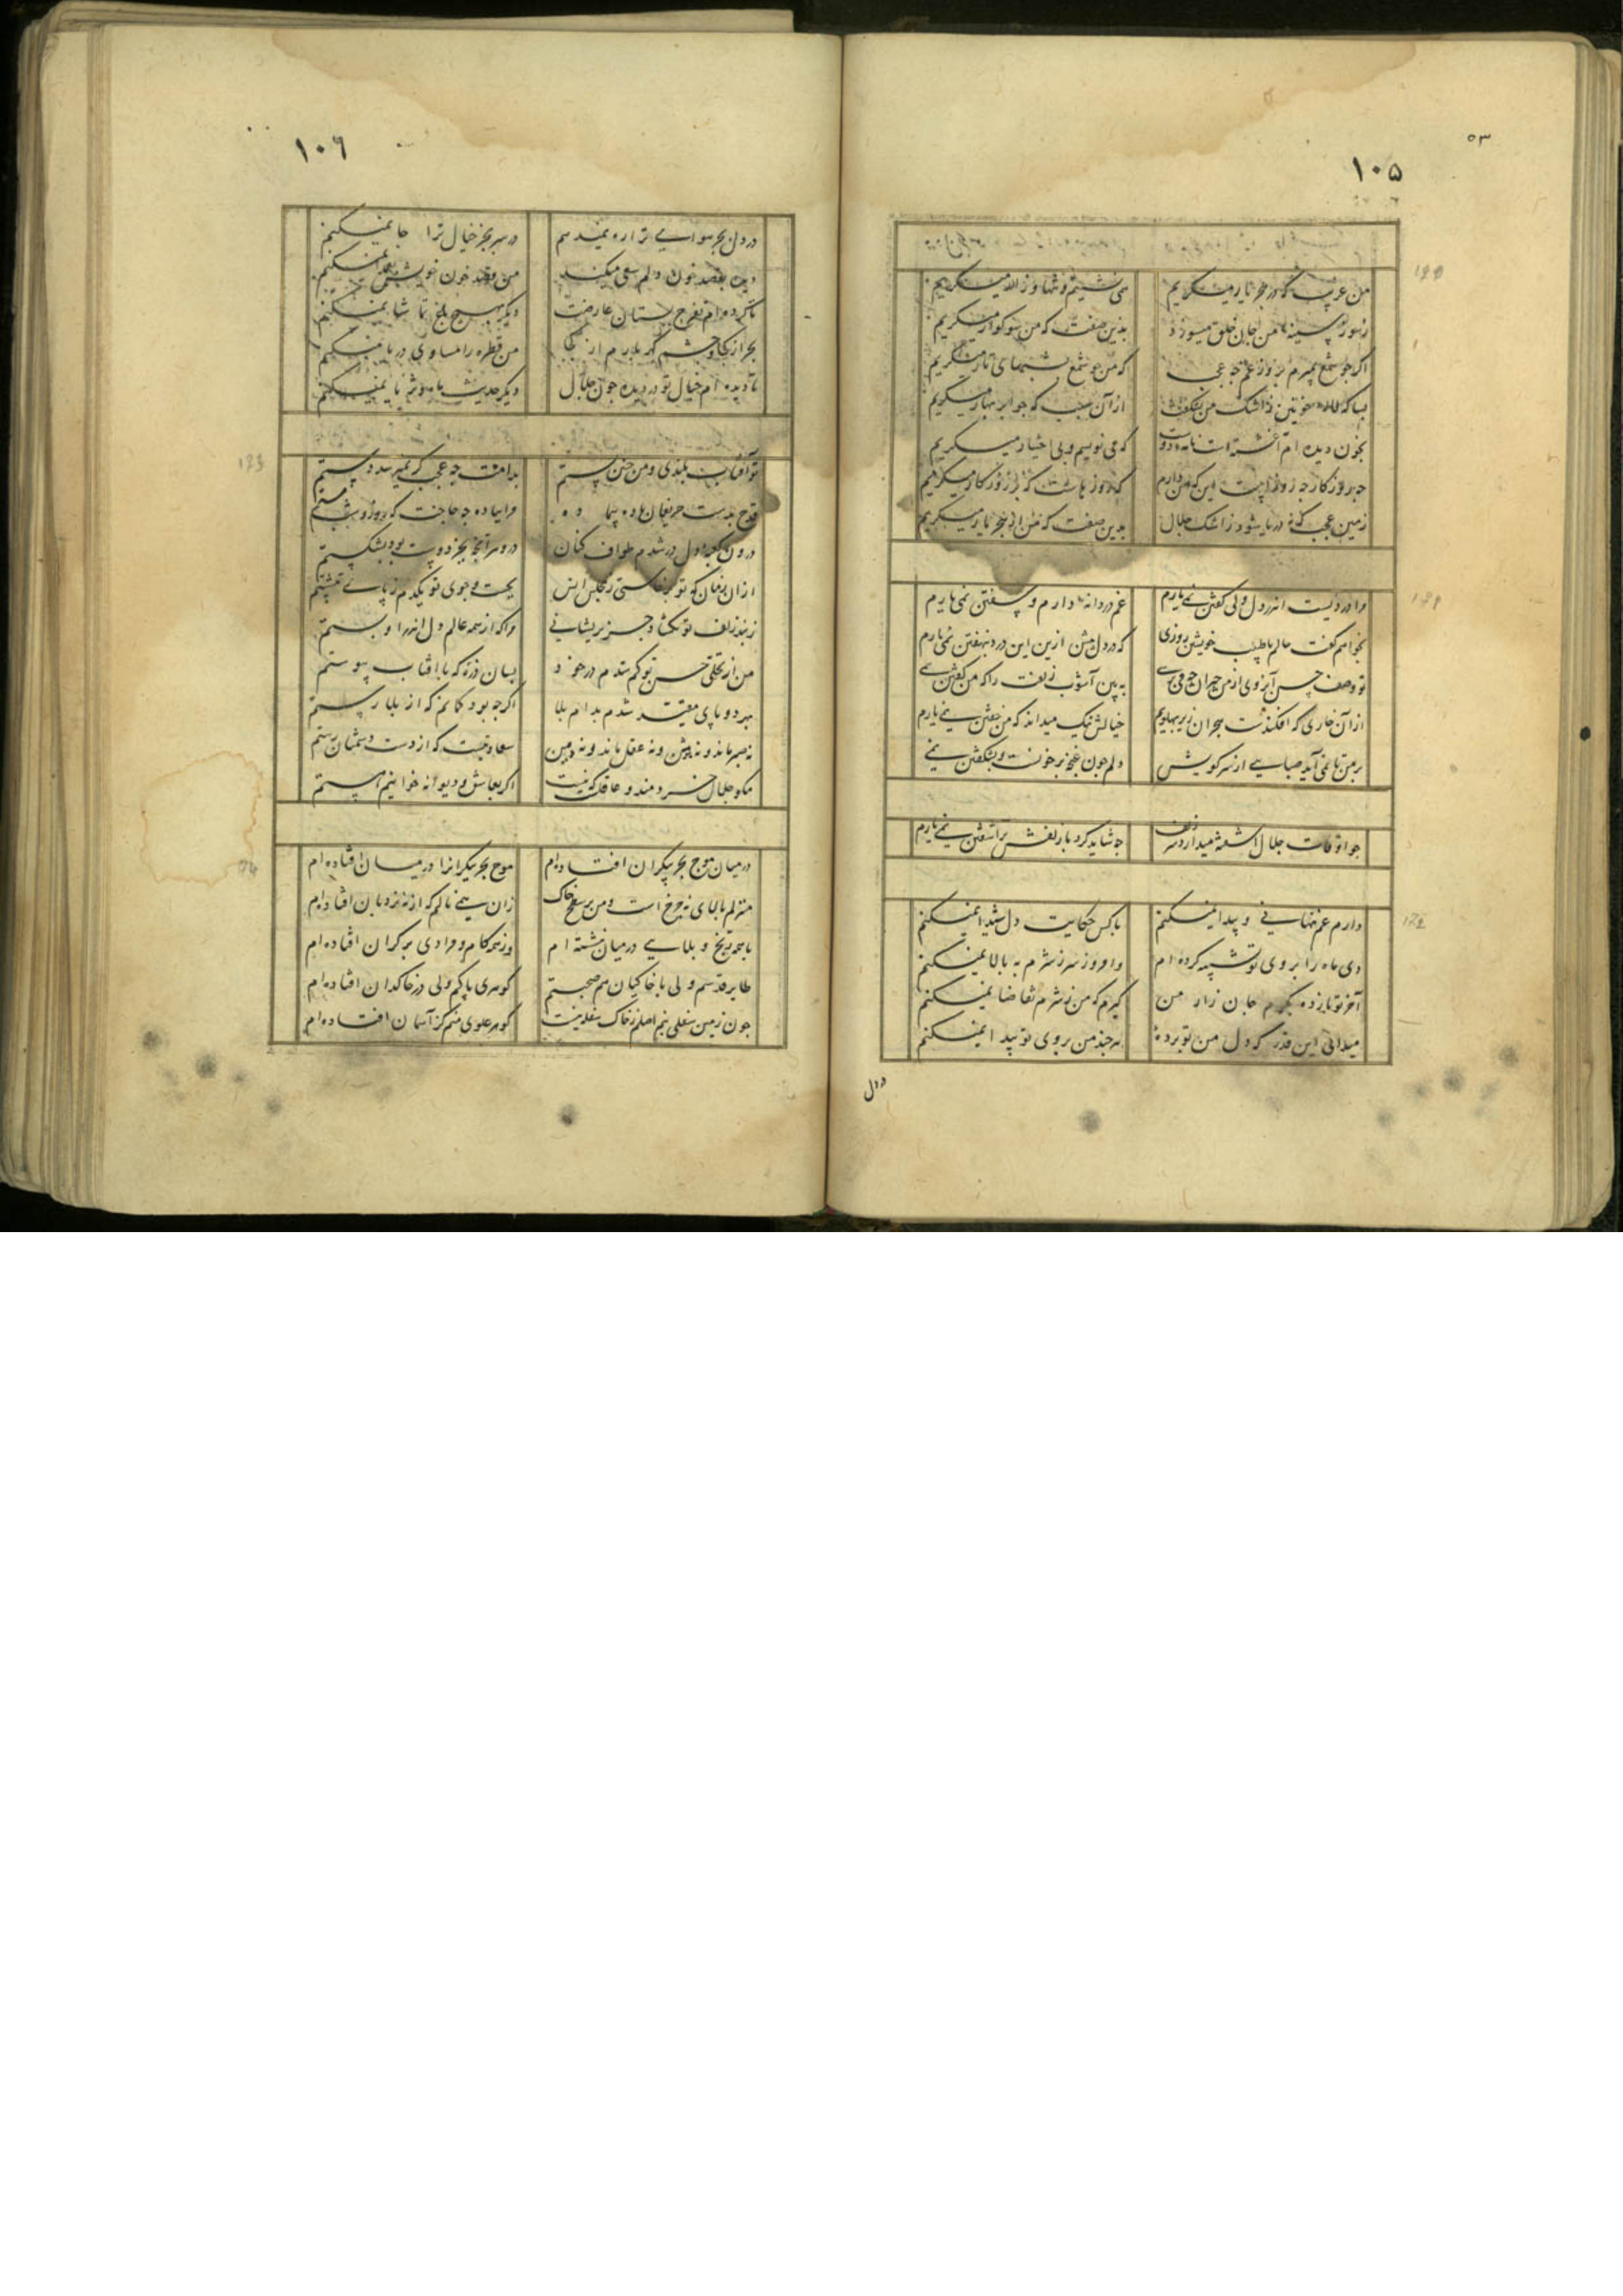 ۵۳
۱۰۵
من غریب که در هجر یار میگریم
همی نشینم و تنها و زار میگریم
ز سوز سینه من جان خلق میسوزد
بدین صفت که من سوکوار میگریم
اکر چو شمع بمیرم بروز غم چه عجب
که من چو شمع بشبهای تار میگریم
بسا که لاله خونین ز اشک من بشکفت
از آن سبب که چو ابر بهار میگریم
بخون دیده ام آغشته است نامه دوست
که می نویسم و بی اختیار میگریم
چه روزکار چه روزست این که من دارم
که روزهاست که بر روزکار میگریم
زمین عجب که نه دریا شود ز اشک جلال
بدین صفت که من از هجر یار میگریم
مرا دردیست اندر دل ولی کفتن نمی یارم
غم دردانه دارم و سفتن نمی یارم
بخواهم کفت حالم با طبیب خویشتن روزی
که در دل بیش ازین این درد بنهفتن نمی یارم
تو وصف حسن آنروی از من حیران چه می پرسی
به بین آشوب زلفت را که من کفتن نمی
از آن خاری که افکندست هجران زیر پهلویم
خیالش نیک میداند که من خفتن نمی یارم
بر من تا نمی آید صبایی از سر کویش
دلم چون غنچه پر خونست و بشکفتن نمی
چو اوقات جلال آشفته میدارد سر زلفت
چه شاید کرد با زلفش برآشفتن نمی یارم
دارم غم نهانی و پیدا نمیکنم
با کس حکایت دل شیدا نمیکنم
دی ماه را بروی تو تشبیه کرده ام
وامروز سر ز شرم به بالا نمیکنم
آخر تو بازده بکرم جان زار من
کیرم که من ز شرم تقاضا نمیکنم
میدانی این قدر که دل من تو برده
هرچند من بروی تو پیدا نمیکنم
در دل
۱۰۶
در دل بجز هوای ترا ره نمیدهم
در سر بجز خیال ترا جا نمیکنم
دیده بقصد خون دلم سعی میکند
من قصد خون خویش بعمدا نمیکنم
تا کرده ام تفرج بستان عارضت
دیکر بهیچ باغ تماشا نمیکنم
بحر از کجا و چشم کهربارم از کجا
من قطره را مساوی دریا نمیکنم
تا دیده ام خیال تو در دیده چون جلال
دیکر حدیث ماه و ثریا نمیکنم
تو آفتاب بلندی و من چنین پستم
بدامنت چه عجب کر نمیرسد دستم
قدح بدست حریفان باده پیما ده
مرا بباده چه حاجت که روز و شب مستم
درون کعبه دل در شدم طواف کنان
در و هر آنچه بجز دوست بود بشکستم
از ان زمان که تو برخاستی ز مجلس انس
بجست و جوی تو یکدم ز پای ننشستم
ز بند زلف تو نکشاد جز پریشانی
مرا که از همه عالم دل اندرا و بستم
من از تجلی حسن تو کم شدم در خود
بسان ذره که با افتاب پیوستم
بهر دو پای مقید شدم بدام بلا
اکرچه بود کمانم که از بلا رستم
نه صبر ماند و نه هوش و نه عقل ماند و نه دین
سعادتیست که از دست دشمنان رستم
مکو جلال خردمند و عاقلی که نیست
اکر بعاشق و دیوانه خوانیم هستم
در میان موج بحر بیکران افتاده ام
موج بحر بیکرانرا در میان افتاده ام
منزلم بالای نه چرخ است و من بر سطح خاک
زان همی نالم که از نه نردبان افتاده ام
با همه رنج و بلایی درمیان بنشسته ام
وز همه کام و مرادی بر کران افتاده ام
طایر قدسم ولی با خاکیان هم صحبتم
کوهری پاکم ولی در خاکدان افتاده ام
چون زمین سفلی نیم اصلم ز خاک سفل نیست
کوهر علوی منم کز آسمان افتاده ام